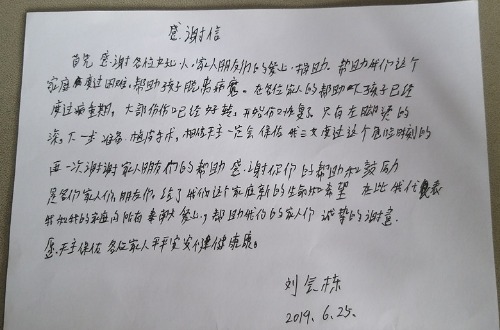 感谢信
首先感谢各位爱心人,家人朋友们的爱心捐助。帮助我们这个
家庭度过困难,帮助孩子脱离病魔。在各位家人的帮助下孩子已经
度过病重期,大部份伤口已经好转,开始伤口恢复了只有左脚烫的
深,下一步准备植皮手术,相信天主一定会保佑我三女度过这个危险时刻的
再一次谢谢家人朋友们的帮助感谢你们的帮助和鼓励
是各们家人们,朋友们,给了我们这个家庭新的生命和希望 在此我代表
我和我的家庭向所有奉献爱心,帮助我们的家人们 诚挚的谢意.
愿天主保佑各位家人平平安安健健康康。
刘会栋
2019.6.25.